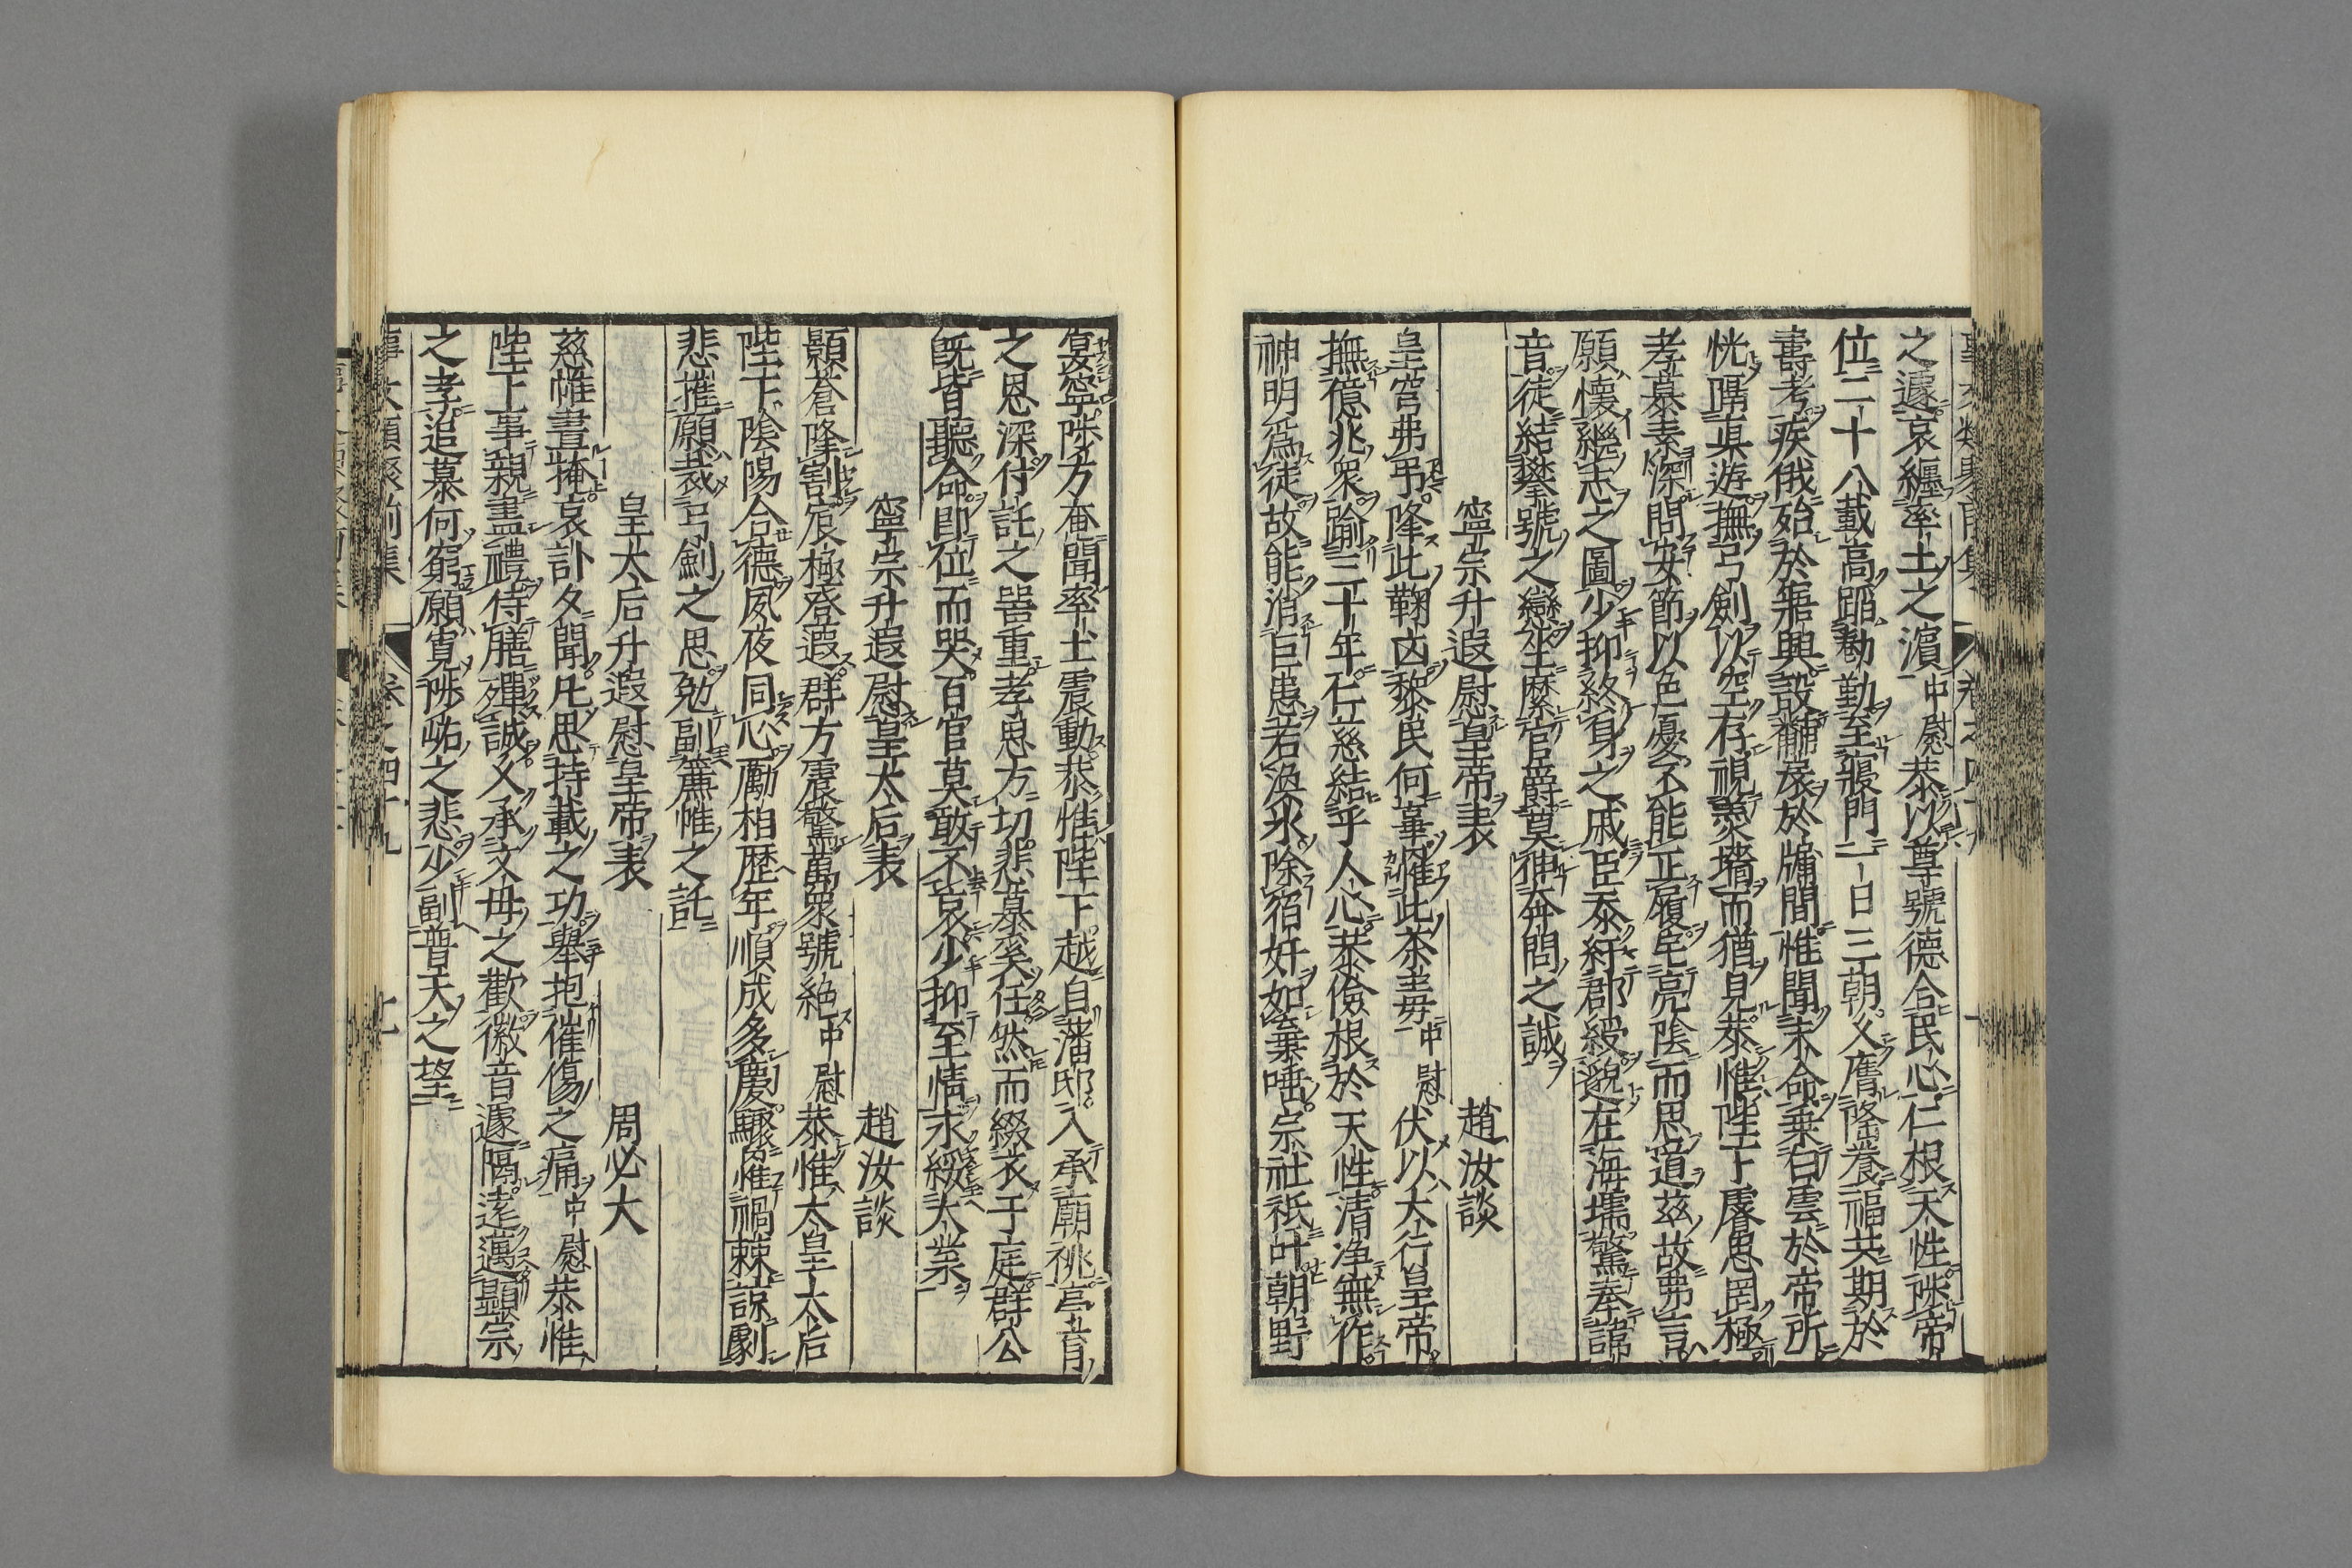 之遽哀纏率土之濵中慰恭以尊號德合民心仁根天性陟帝
位二十八載高蹈勲勤至寢門一日三朝父膺隆養福共期於
壽考疾俄殆於寤興設黼扆於牖間惟聞末命乗白雲於帝所
恍隔眞遊撫弓劍以空存視羮墻而猶見恭惟陛下孝思罔極
孝慕素深問安節以色憂不能正履宅亮陰而思道茲故弗言
願懐繼志之圖少抑終身之戚臣忝紆郡綬邈在海壖驚奉諱
音徒結攀號之戀坐縻官爵莫神奔問之誠
寧宗升遐慰皇帝表 趙汝談
皇穹弗弔隆此鞠凶黎民何辜罹此荼毒中慰伏以大行皇帝
撫億兆衆踰三十年仁慈結乎人心恭儉根於天性清浄無作
神明爲徒故能消巨患若渙氷除宿奸如棄唾宗社祇叶朝野
宴寧陟方奄聞率土震動恭惟陛下越自藩邸入承廟祧亭育
之恩深付託之畧重孝思方切悲慕奚任然而綴衣于庭群公
旣皆聽命即位而哭百官莫敢不哀少抑至情永綏大業
寧宗升遐慰皇太后表 趙汝談
顥蒼隆割宸極登遐群方震驚萬衆號絶中慰恭惟太皇太后
陛下陰陽合德夙夜同心勵相歴年順成多慶驟罹禍棘諒劇
悲摧願裁弓劍之思勉副簾帷之託
皇太后升遐慰皇帝表 周必大
慈帷晝掩哀訃夕聞凡思持載之功擧抱催傷之痛中慰恭惟
陛下事親盡禮侍膳殫誠乂承文母之歡徽音遽隔遠邁顯宗
之孝追慕何窮願寛陟岵之悲少副普天之望
事文類聚前集 卷之四十九